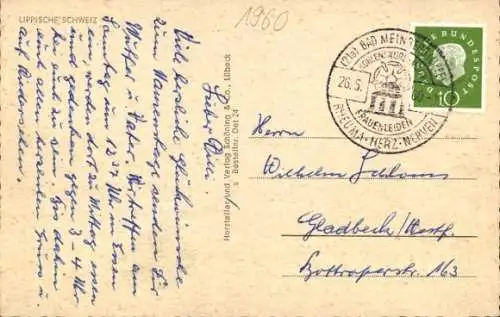 LIPPISCHE SCHWEIZ
1960
Lieber Onkel
Viele herzliche Glückwünsche
zum Namenstage senden Dir
Mutzel u. Vater. Wir treffen am
Samstag um 12.30 Uhr in Essen
ein, werden dort zu Mittag essen
und gedenken gegen 3-4 Uhr
bei euch zu sein. Bis dahin
euch allen herzliche Grüsse u.
auf Wiedersehen.
Hersteller und Verlag Schöning & Co., Lübeck
s Bestellnr. Det 24
(21a) BAD MEINBERG
KOHLENSÄURE
26.5.
FRAUENLEIDEN
RHEUMA-HERZ-NERVEN
DEUTSCHE BUNDESPOST
10
Herrn
Wilhelm
Gladbeck/Westf.
Bottroperstr. 163